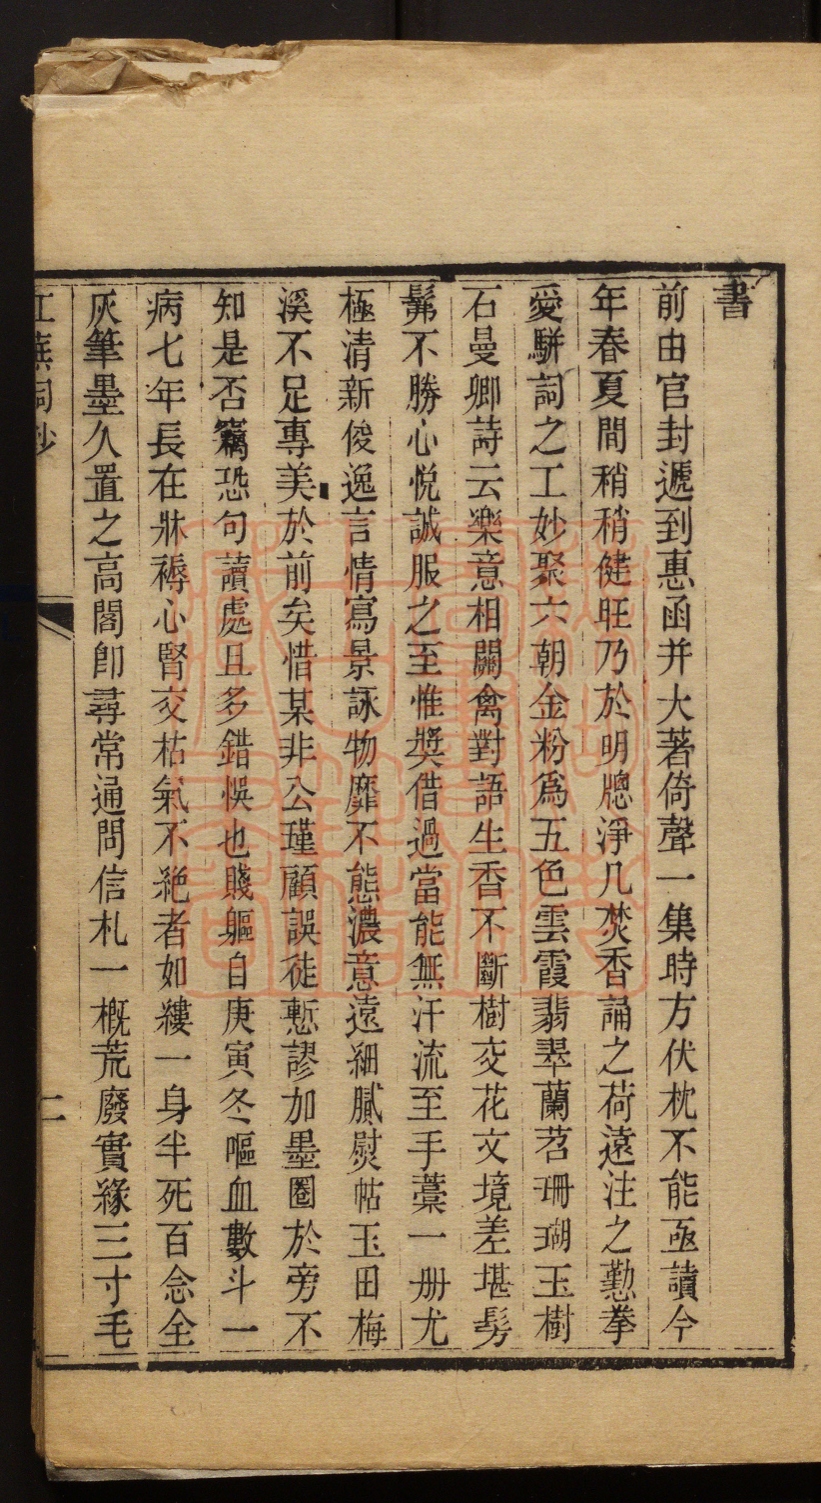 書
前由官封遞到惠函并大著倚聲一集時方伏枕不能亟讀今
年春夏間稍稍健旺乃於明牕淨几焚香誦之荷遠注之懃拳
愛駢詞之工妙聚六朝金粉爲五色雲霞翡翠蘭苕珊瑚玉樹
石曼卿詩云樂意相關禽對語生香不斷樹交花文境差堪髣
髴不勝心悅誠服之至惟獎借過當能無汗流至手藁一册尤
極清新俊逸言情寫景詠物靡不態濃意遠細膩熨帖玉田梅
溪不足專美於前矣惜某非公瑾顧誤徒慙謬加墨圈於旁不
知是否竊恐句讀處且多錯悞也賤軀自庚寅冬嘔血數斗一
病七年長在牀褥心腎交枯氣不絶者如縷一身半死百念全
灰筆墨久置之高閣卽尋常通問信札一概荒廢實緣三寸毛
蕪詞鈔
二